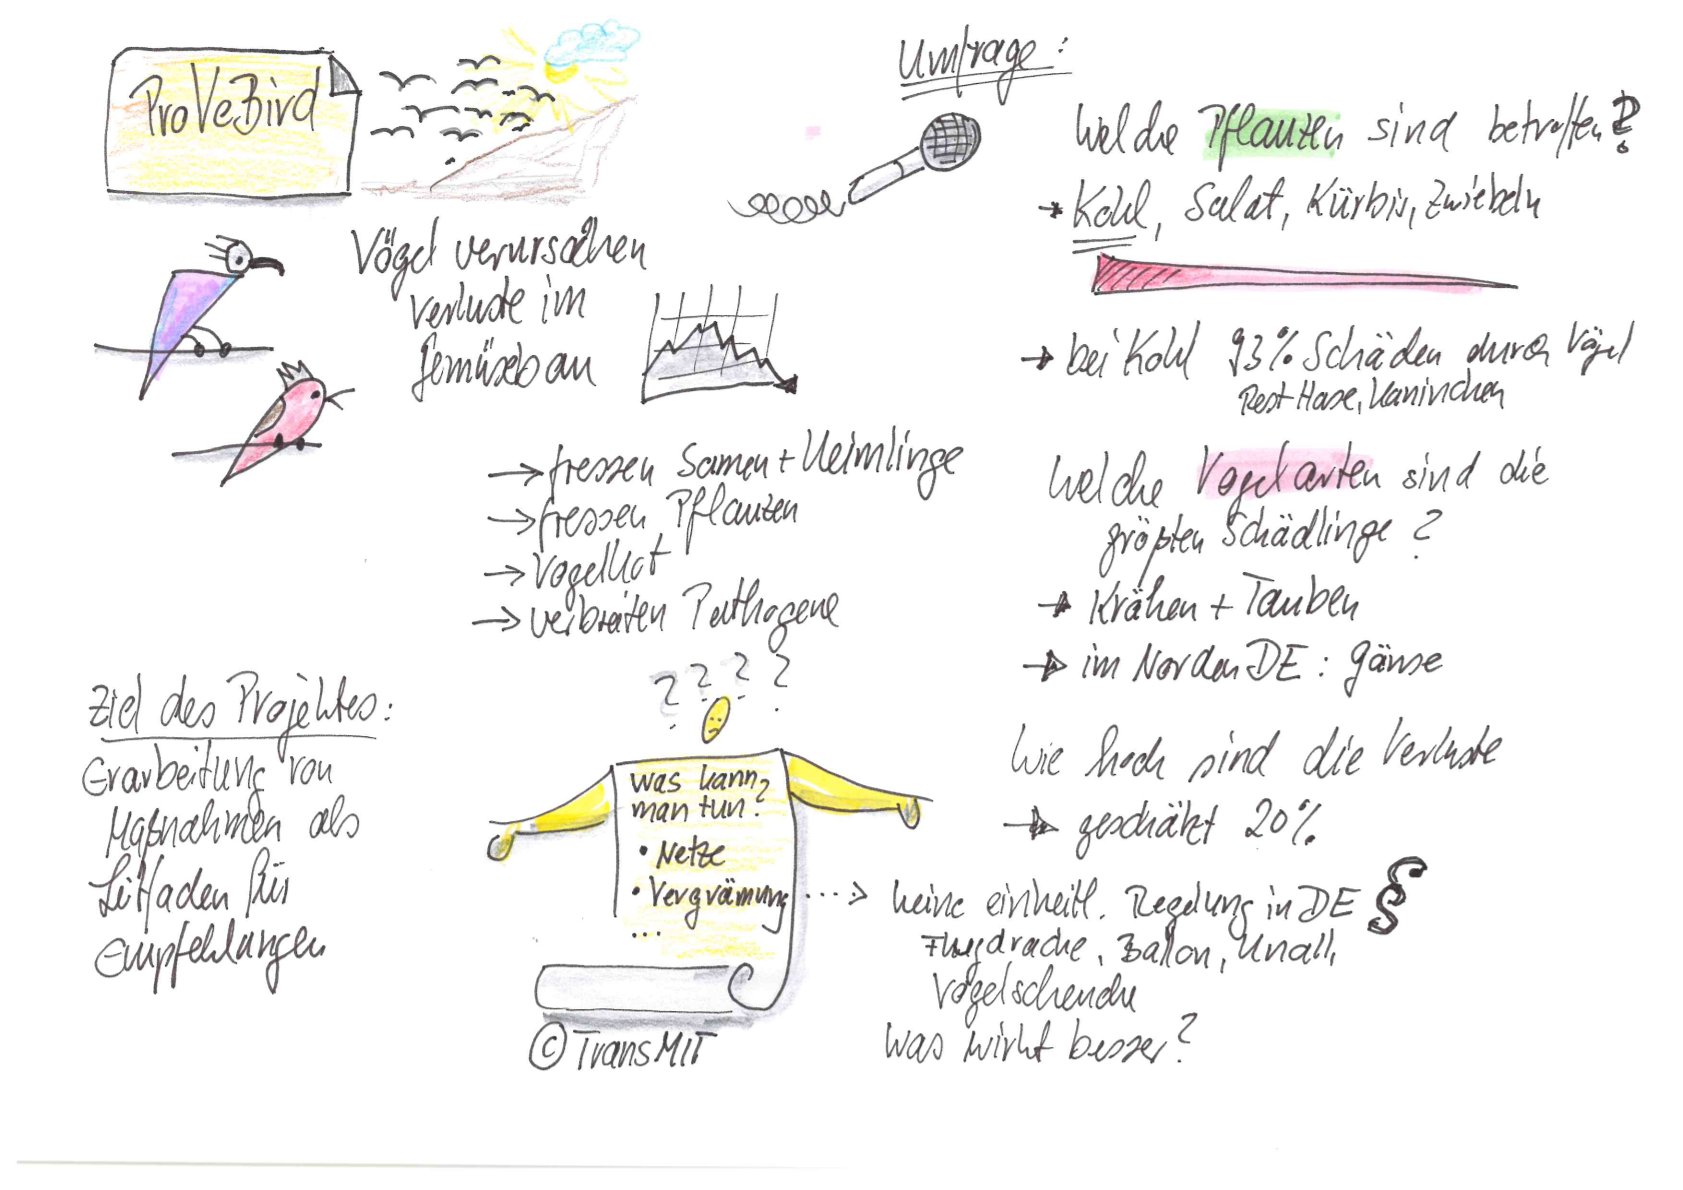 ProVeBird
Vögel verursachen
Verluste im
Gemüsebau
→ fressen Samen + Keimlinge
→ fressen Pflanzen
→ Vogelkot
→ verbreiten Pathogene
Ziel des Projektes:
Erarbeitung von
Maßnahmen als
Leitfaden für
Empfehlungen
? ? ? ?
Was kann
man tun?
• Netze
• Vergrämung
...
© TransMIT
Umfrage:
Welche Pflanzen sind betroffen?
→ Kohl, Salat, Kürbis, Zwiebeln
→ bei Kohl 93% Schäden durch Vögel
Rest Hase, Kaninchen
Welche Vogelarten sind die
größten Schädlinge?
→ Krähen + Tauben
→ im Norden DE: Gänse
Wie hoch sind die Verluste
→ geschätzt 20%
...> keine einheitl. Regelung in DE §
Flugdrache, Ballon, Knall,
Vogelscheuche
Was wirkt besser?